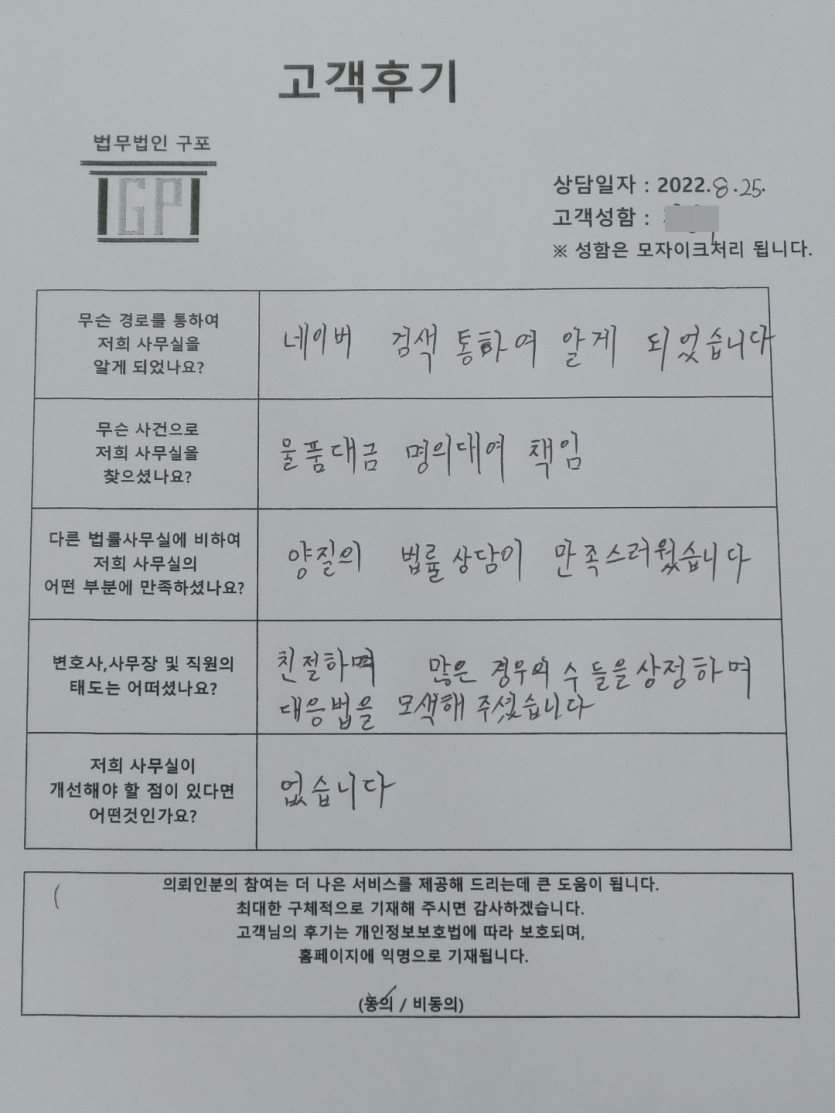 고객후기
법무법인 구포
GP
상담일자 : 2022.8.25.
고객성함 :
※ 성함은 모자이크처리 됩니다.
무슨 경로를 통하여
저희 사무실을
알게 되었나요?
네이버 검색 통하여 알게 되었습니다
무슨 사건으로
저희 사무실을
찾으셨나요?
물품대금 명의대여 책임
다른 법률사무실에 비하여
저희 사무실의
어떤 부분에 만족하셨나요?
양질의 법률상담이 만족스러웠습니다
변호사,사무장 및 직원의
태도는 어떠셨나요?
친절하며 많은 경우의 수 들을 상정하며
대응법을 모색해 주셨습니다
저희 사무실이
개선해야 할 점이 있다면
어떤것인가요?
없습니다
의뢰인분의 참여는 더 나은 서비스를 제공해 드리는데 큰 도움이 됩니다.
최대한 구체적으로 기재해 주시면 감사하겠습니다.
고객님의 후기는 개인정보보호법에 따라 보호되며,
홈페이지에 익명으로 기재됩니다.
(동의 / 비동의)